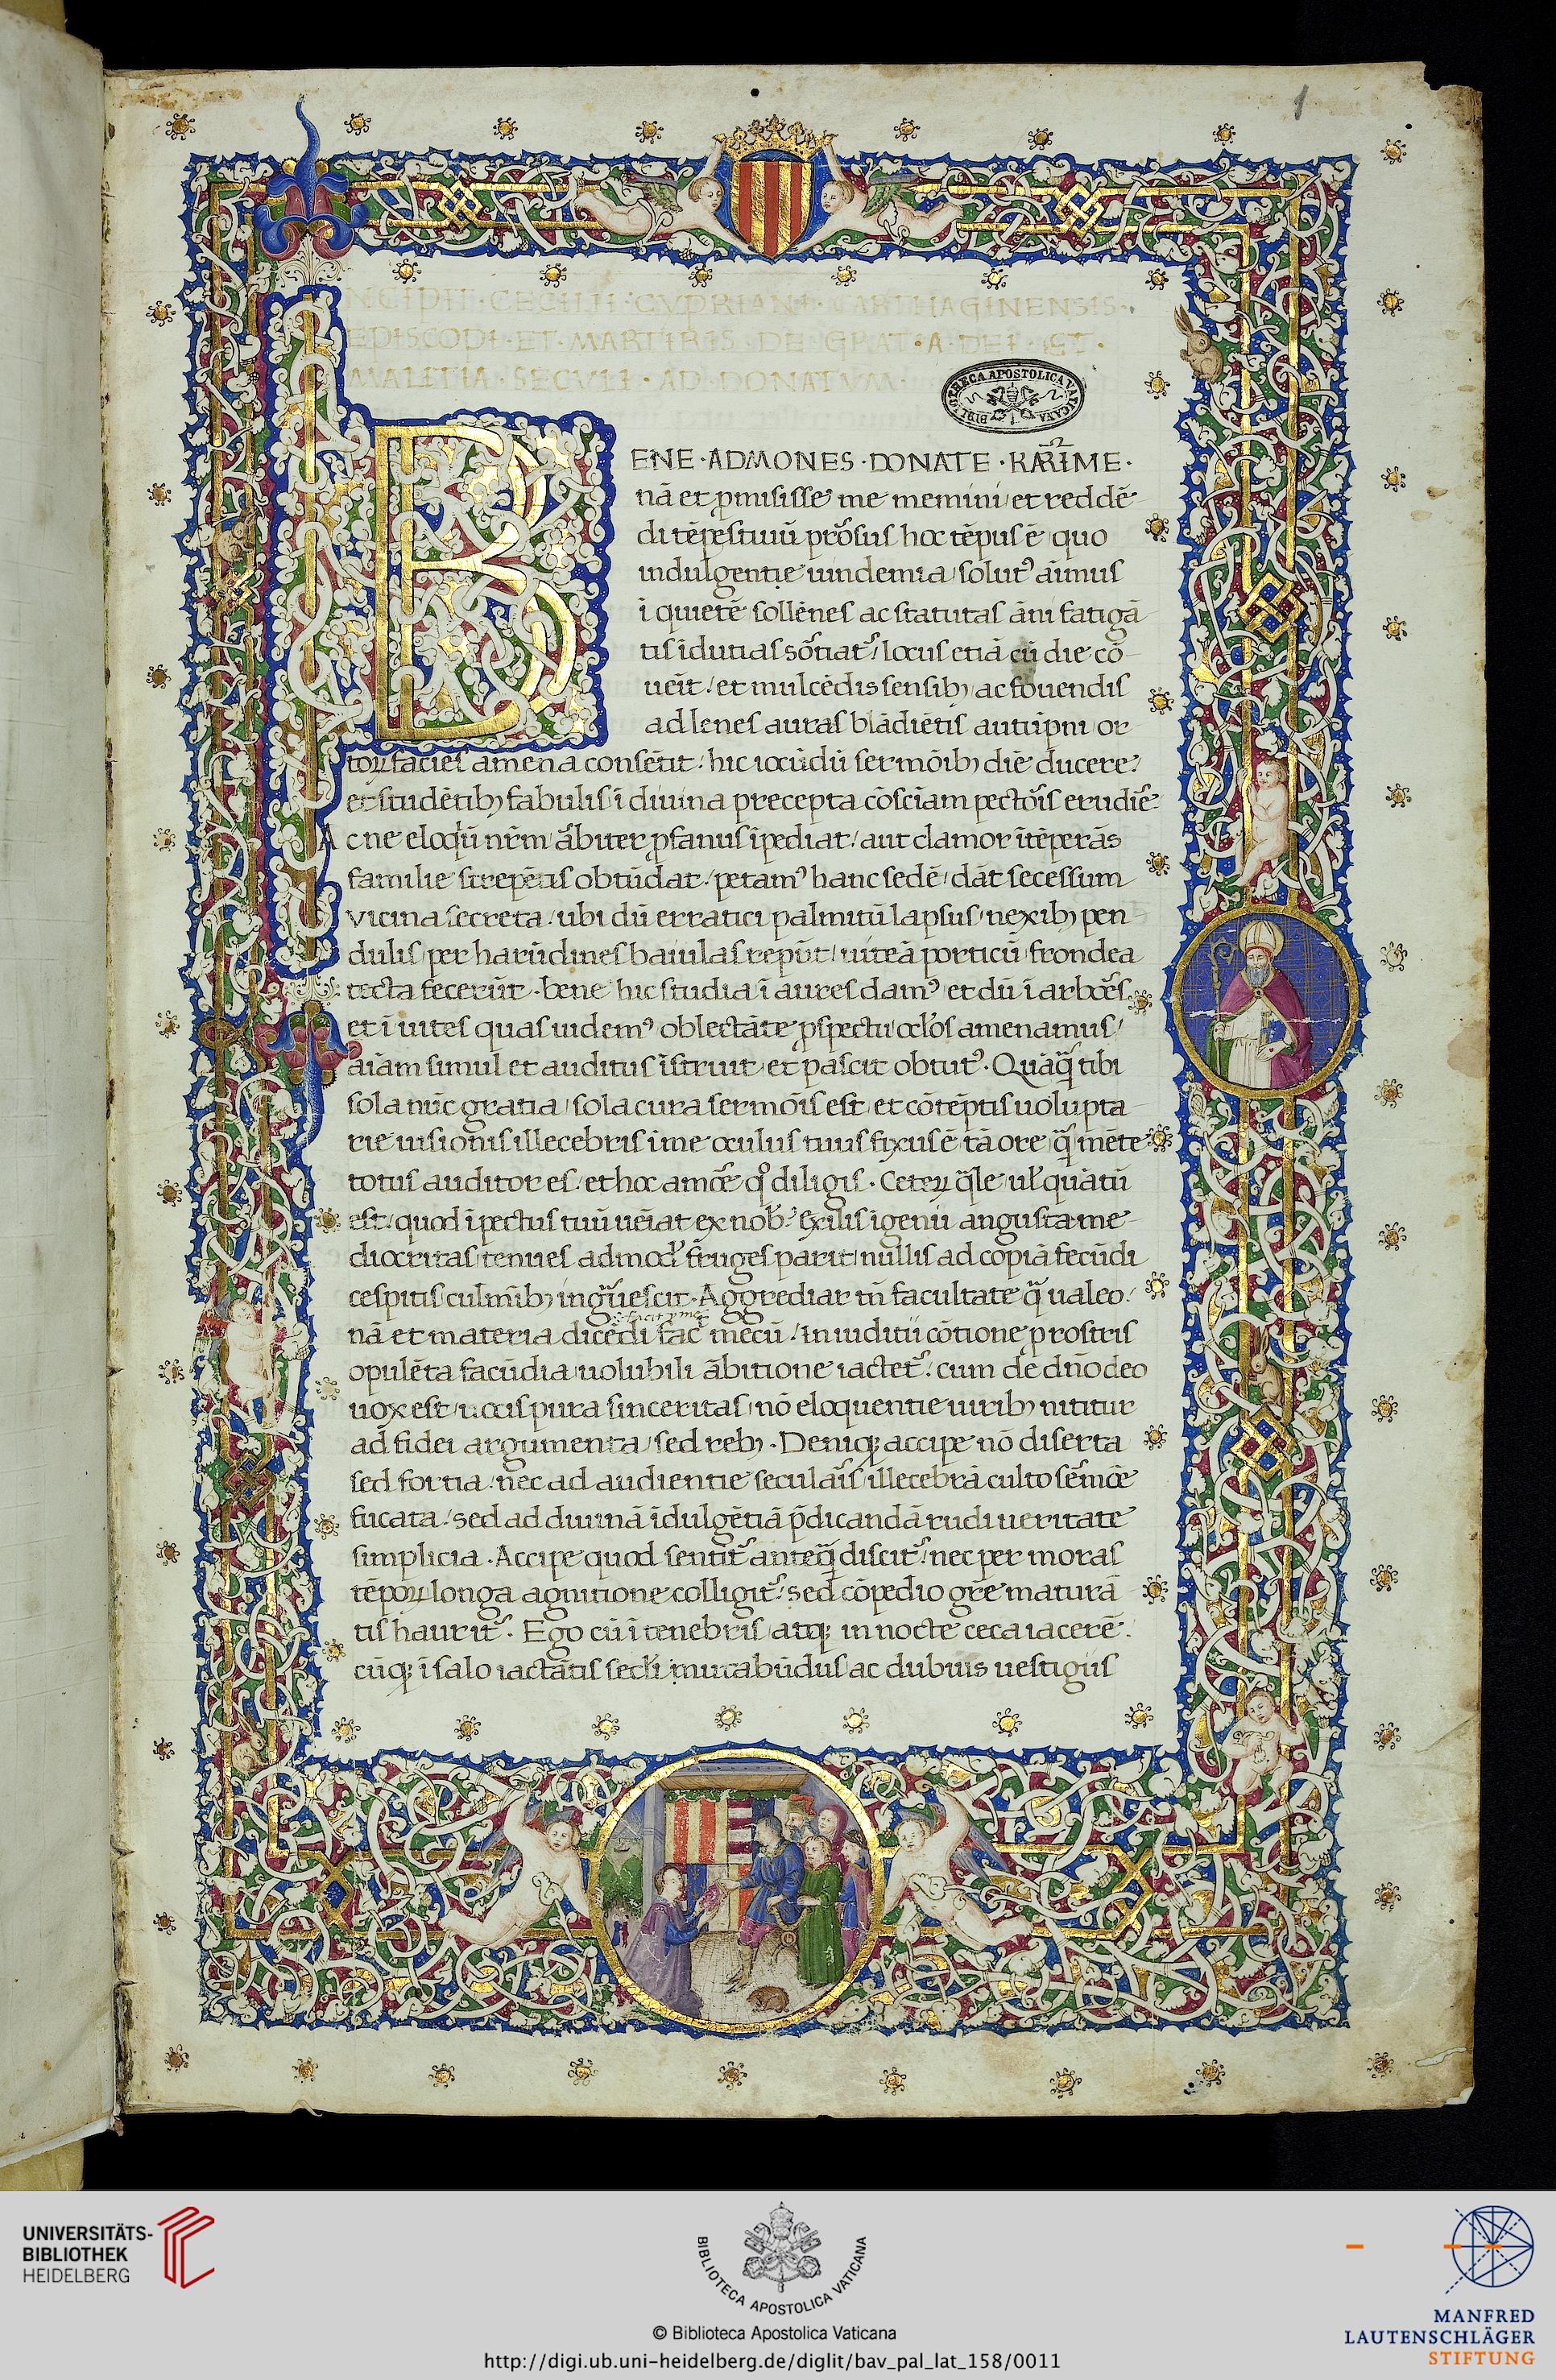 1
NCIPIT · CECILII · CYPRIANI · CARTHAGINENSIS ·
EPISCOPI · ET · MARTIRIS · DE · GRAT · A · DEI · ET ·
MALITIA · SECVLI · AD · DONATVM
BIBLIOTHECA APOSTOLICA VATICANA
B
ENE · ADMONES · DONATE · KARIME ·
nā et ꝓmisisse me memini et reddē
di tēpestiuū prosus hoc tēpus ē quo
indulgentie uindemia solutꝰ aīmus
ī quietē sollēnes ac statutas āni fatigā
tis īdutias sortiat᷑ / locus etiā cū die cō
ueīt / et mulcēdis sensibꝫ ac fouendis
ad lenes auras blādiētis autūpni or
toꝝ facies amena consētit / hic iocūdū sermōibꝫ diē ducere /
et studētibꝫ fabulis ī diuina precepta cōsciam pectoris erudire
Ac ne eloqū nr̄m ārbiter ꝓfanus īpediat / aut clamor ītēperās
familie strepētis obtūdat / petamꝰ hanc sedē / dāt secessum
vicina secreta / ubi dū erratici palmitū lapsus nexibꝫ pen
dulis per harūdines baiulas repūt / uiteā porticū frondea
tecta fecerūt · bene hic studia ī aures damꝰ et dū ī arbores
et ī uites quas uidemꝰ oblectāte ꝓspectu oclos amenamus /
aīam simul et auditus īstruit et pascit obtutꝰ · Quāq̄ tibi
sola nūc gratia sola cura sermōis est et cōtēptis uolupta
rie uisionis illecebris ī me oculus tuus fixus ē tā ore q̄ mēte
totus auditor es / et hoc amore q̊ diligis · Ceteꝝ q̄le uł quātū
est / quod ī pectus tuū ueīat ex nob̄ / exilis īgenii angusta me
diocritas tenues admodꝰ fruges parit nullis ad copiā fecūdi
cespitis culmībꝫ ingrauescit · Aggrediar tn̄ facultate q̄ ualeo /
nā et materia dicēdi fac mecū / in iuditii cōtione ꝓ rostris
opulēta facūdia uolubili ābitione iactet᷑ / cum de dn̄o deo
uox est / uocis pura sinceritas nō eloquentie uiribꝫ nititur
ad fidei argumenta / sed rebꝫ · Deniqꝫ accipe nō diserta
sed fortia / nec ad audientie secularis illecebrā culto sermōe
fucata / sed ad diuinā īdulgētiā p̄dicandā rudi ueritate
simplicia · Accipe quod sentit᷑ anteq̄ discit᷑ / nec per moras
tēpoꝝ longa agnitione colligit᷑ / sed cōpedio gr̄e maturā
tis haurit᷑ · Ego cū ī tenebris atqꝫ in nocte ceca iacerē
cūqꝫ ī salo iactātis secli mutabūdus ac dubiis uestigiis
UNIVERSITÄTS-
BIBLIOTHEK
HEIDELBERG
BIBLIOTECA APOSTOLICA VATICANA
© Biblioteca Apostolica Vaticana
http://digi.ub.uni-heidelberg.de/diglit/bav_pal_lat_158/0011
MANFRED
LAUTENSCHLÄGER
STIFTUNG